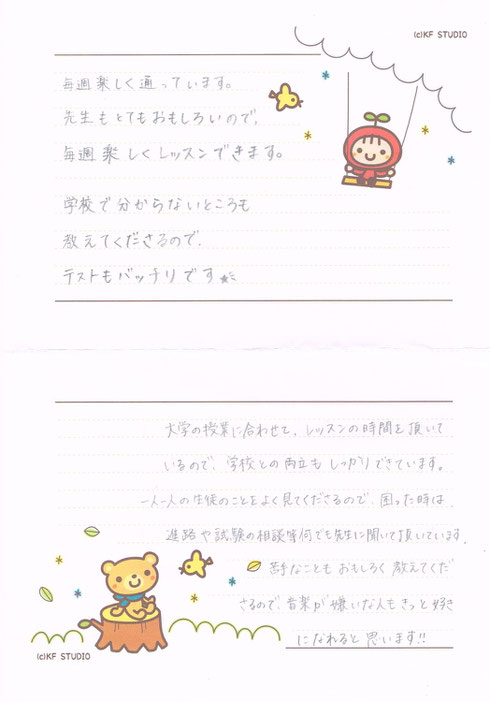 (c)KF STUDIO
毎週楽しく通っています。
先生もとてもおもしろいので、
毎週楽しくレッスンできます。
学校で分からないところも
教えてくださるので、
テストもバッチリです★
大学の授業に合わせて、レッスンの時間を頂いて
いるので、学校との両立もしっかりできています。
一人一人の生徒のことをよく見てくださるので、困った時は、
進路や試験の相談等何でも先生に聞いて頂いています。
苦手なこともおもしろく教えてくだ
さるので、音楽が嫌いな人もきっと好き
になれると思います!!
(c)KF STUDIO